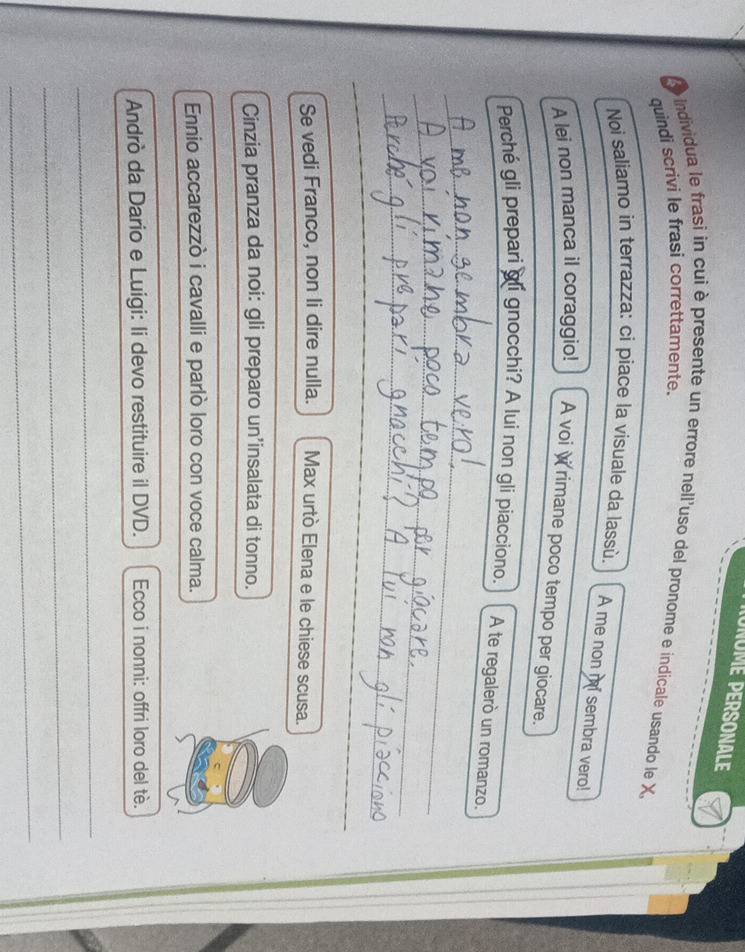 PRONOME PERSONALE
Individua le frasi in cui è presente un errore nell'uso del pronome e indicale usando le X,
quindi scrivi le frasi correttamente.
Noi saliamo in terrazza: ci piace la visuale da lassù. A me non mi sembra vero!
A lei non manca il coraggio! A voi vi rimane poco tempo per giocare.
Perché gli prepari gli gnocchi? A lui non gli piacciono. A te regalerò un romanzo.
A me non sembra vero!
A voi rimane poco tempo per giocare.
Perché gli prepari gnocchi? A lui non gli piacciono
Se vedi Franco, non li dire nulla. Max urtò Elena e le chiese scusa.
Cinzia pranza da noi: gli preparo un'insalata di tonno.
Ennio accarezzò i cavalli e parlò loro con voce calma.
Andrò da Dario e Luigi: li devo restituire il DVD. Ecco i nonni: offri loro del tè.